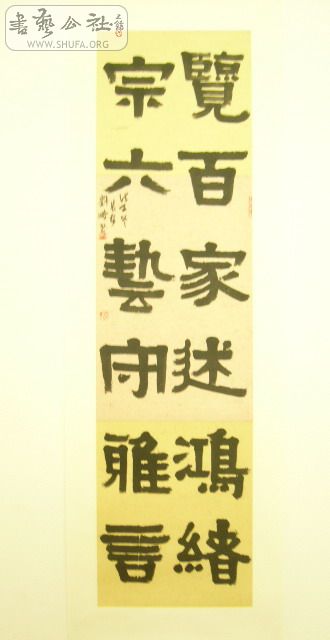 書藝公社
WWW.SHUFA.ORG
覽百家述鴻緒
宗六藝守雅言